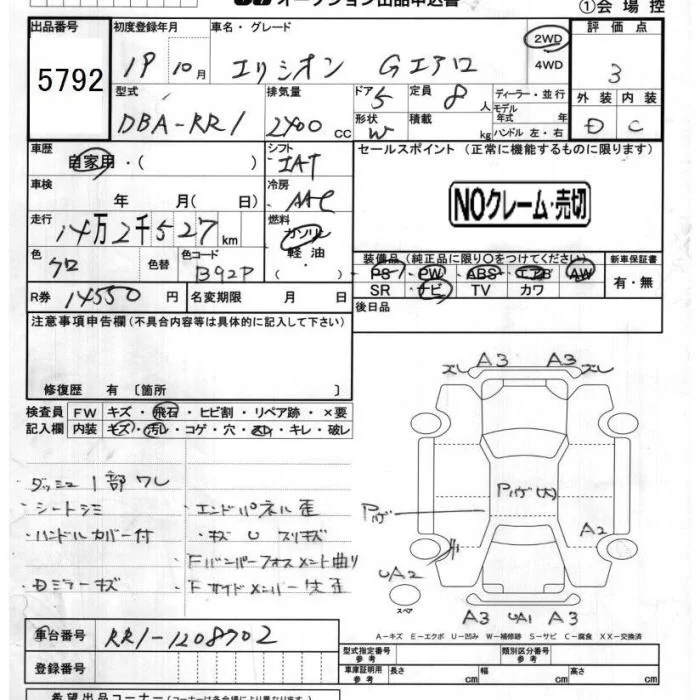 オークション出品申込書
①会場控
出品番号
5792
初度登録年月
19年 10月
車名・グレード
エリシオン Gエアロ
2WD
4WD
評価点
3
型式
DBA-RR1
排気量
2400 cc
ドア 5
形状 W
定員 8人
積載 kg
ディーラー・並行
モデル年式 年
ハンドル 左・右
外装 内装
D C
車歴
自家用・( )
シフト
IAT
冷房
AAC
セールスポイント (正常に機能するものに限ります)
NOクレーム・売切
車検
年 月( 日)
走行
14万2千527km
燃料
ガソリン
軽油・
( )
色
クロ
色替
色コード
B92P
装備品 (純正品に限り○をつけてください)
PS PW ABS エアB AW
SR ナビ TV カワ
新車保証書
有・無
R券 14550円
名変期限 月 日
後日品
注意事項申告欄 (不具合内容等は具体的に記入して下さい)
修復歴 有 〔箇所 〕
検査員記入欄
FW キズ・飛石・ヒビ割・リペア跡・×要
内装 キズ・汚レ・コゲ・穴・スレ・キレ・破レ
ダッシュ1部ワレ
・シートシミ
・ハンドルカバー付
・Dミラーキズ
・エンドパネル歪
・キズ U スリキズ
・Fバンパーフォースメント曲り
・Fサイドメンバー先歪
ズレ A3 A3 ズレ
Pパゲ Pハゲ(大)
A2
UA2
スペア
A3 UA1 A3
A-キズ E-エクボ U-凹み W-補修跡 S-サビ C-腐食 XX-交換済
車台番号 RR1-1208702
登録番号
型式指定番号 参考
類別区分番号 参考
車庫証明用 参考 長さ cm 幅 cm 高さ cm
希望出品コーナー (コーナーは各会場により異なります)